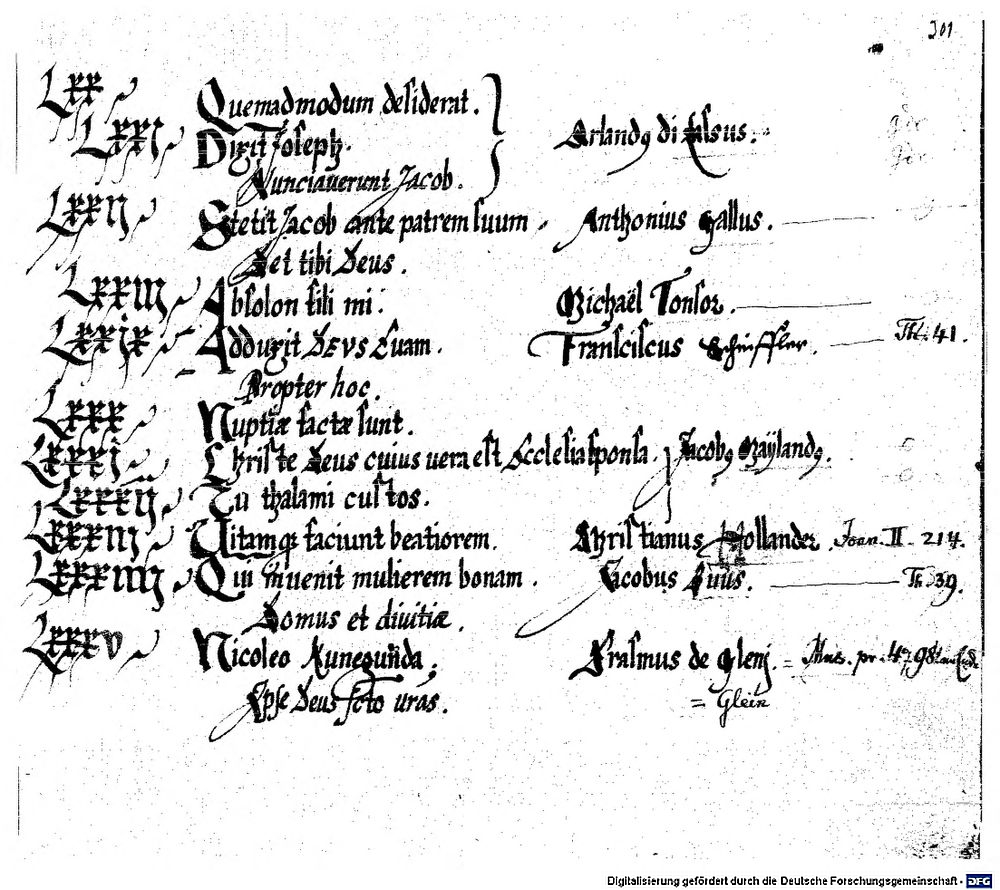 301
Lxx Quemadmodum desiderat.
Lxxj Dixit Joseph. Orlandꝰ di Lassus.
Nunciaverunt Jacob.
Lxxij Stetit Jacob ante patrem suum. Anthonius Gallus.
Det tibi Deus.
Lxxiij Absolon fili mi. Michaël Tonsor.
Lxxix Adduxit DEVS Evam. Franciscus Schueffler. Th. 41.
Propter hoc.
Lxxx Nuptiæ factæ sunt.
Lxxxj Christe Deus cuius vera est Ecclesia sponsa. Jacobꝰ Maÿlandꝰ.
Lxxxij Tu thalami custos.
Lxxxiij Vitamqꝫ faciunt beatiorem. Christianus Hollander. Joan. II. 214.
Lxxxiiij Qui invenit mulierem bonam. Jacobus Luüs. Th. 39.
Domus et divitiæ.
Lxxxv Nicoleo Kunegunda. Erasmus de Glenj. = Mus. pr. 47, 98
Ipse Deus scto vras. = Glein
Digitalisierung gefördert durch die Deutsche Forschungsgemeinschaft - DFG